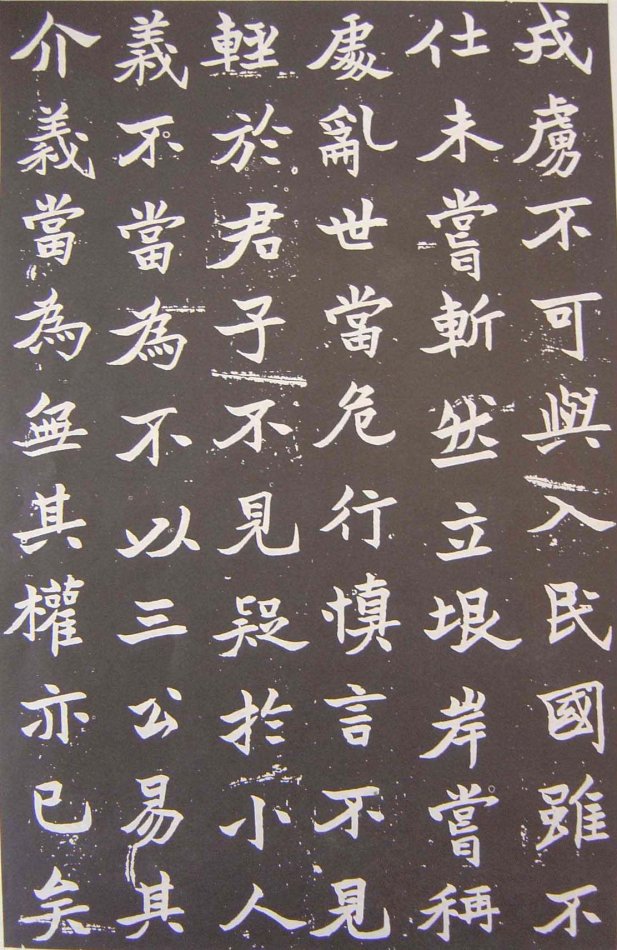 戎虜不可與入民國雖不
仕未嘗斬然立垠岸嘗稱
處亂世當危行慎言不見
輕於君子不見疑於小人
義不當為不以三公易其
介義當為無其權亦已矣